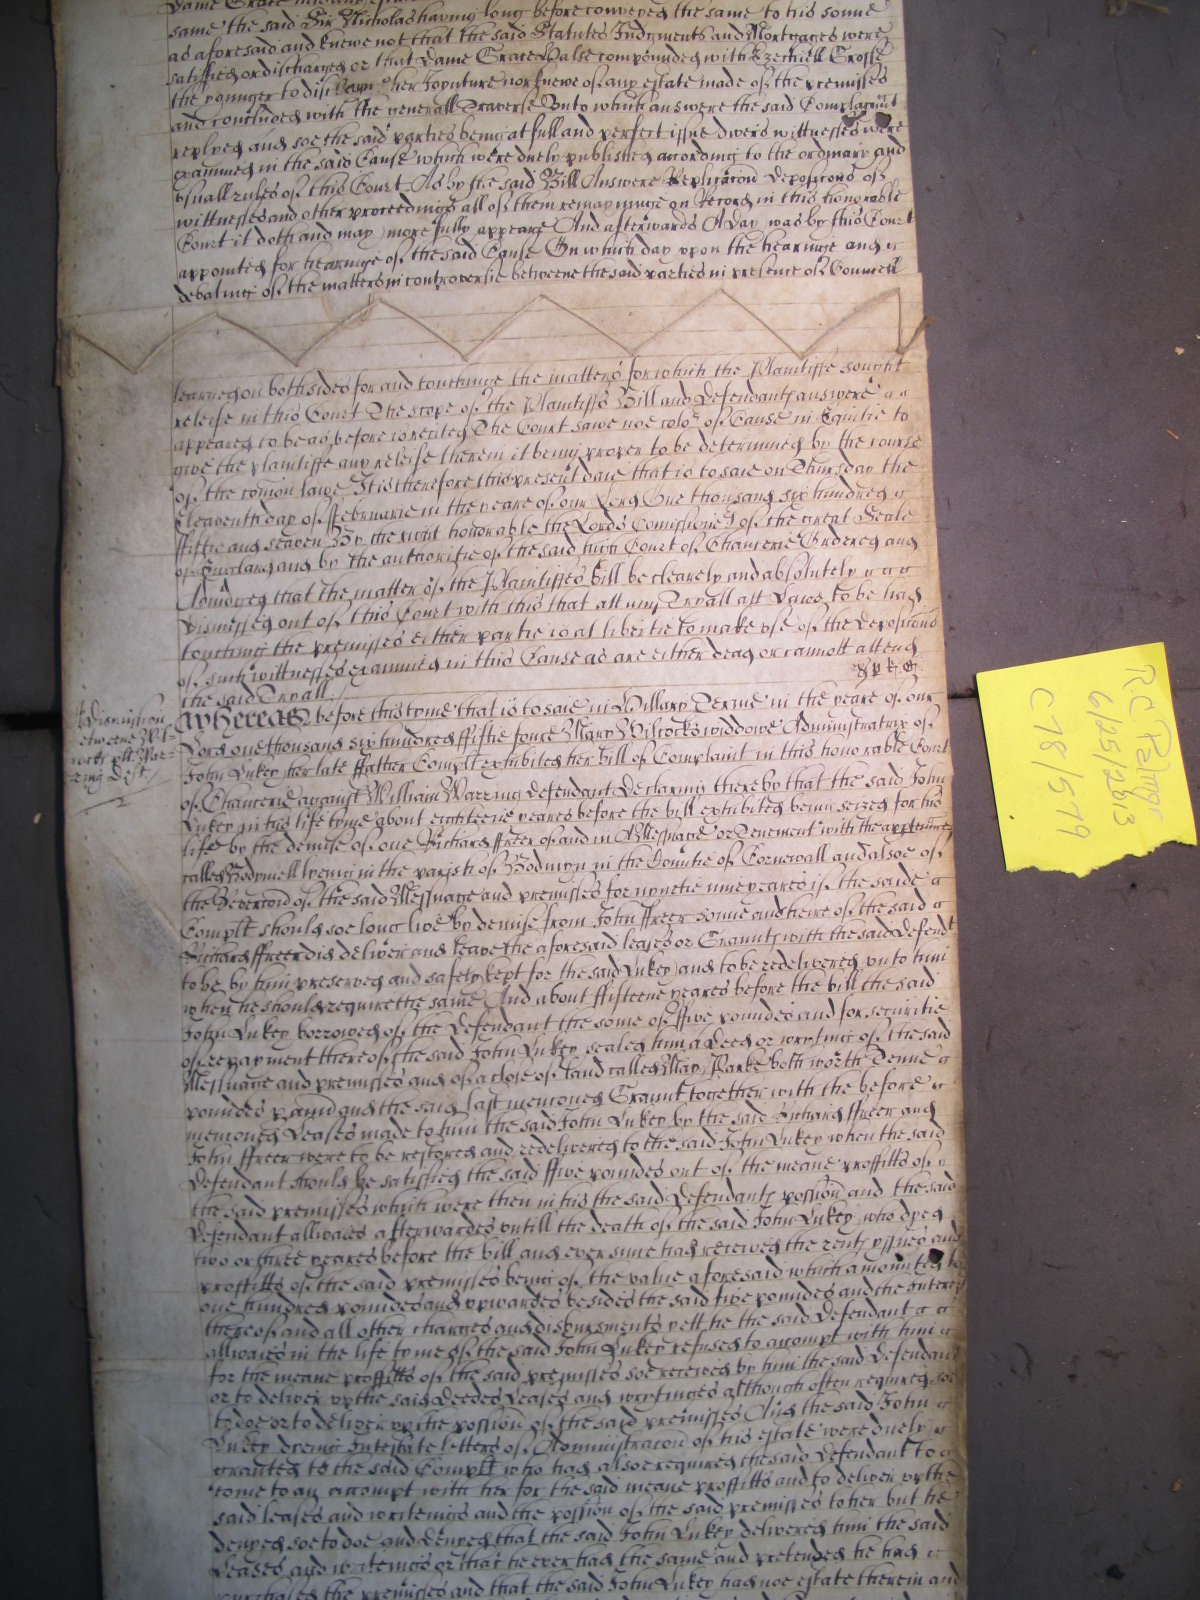 same the said Sir Nicholas having long before conveyed the same to his sonne
as aforesaid and knewe not that the said Statutes Judgments and Mortgages were
satisfied or discharged or that Dame Grace Halse compounded with Ezechiell Grosse
the younger to her Joynture nor knewe of any estate made of the premisses
and concluded with the generall Traverse Unto which answere the said Complainant
replyed and soe the said parties being at full and perfect issue divers wittnesses were
examined in the said Cause which were duely published according to the ordinary and
usuall rules of this Court As by the said Bill Answere Replicacon Deposicons of
wittnesses and other proceedings all of them remayninge on Record in this honorable
Court it doth and may more fully appeare And afterwards A day was by this Court
appointed for hearinge of the said Cause On which day upon the hearinge and
debating of the matters in controversie betweene the said parties in presence of Councell
learned on both sides for and touchinge the matters for which the Plaintiffe sought
releise in this Court The scope of the Plaintiffs Bill and Defendants answere
appeared to be as before is recited The Court sawe noe colour of Cause in Equitie to
give the plaintiffe any releise therein it being proper to be determined by the course
of the comon lawe It is therefore this present daie that is to saie on Thursday the
Eleaventh day of ffebruarie in the yeare of our Lord One thousand six hundred
ffiftie and seaven By the right honorable the Lords Comissioners of the great Seale
of England and by the authoritie of the said high Court of Chancerie Ordered and
Adiudged that the matter of the Plaintiffes bill be clearely and absolutely
dismissed out of this Court with this that att any Tryall att Lawe to be had
touching the premisses either partie is at libertie to make use of the Deposicons
of such wittnesses examined in this Cause as are either dead or cannott attend
the said Tryall
Dismission
betweene Wil-
cocks plt War-
ring Deft
Whereas before this tyme that is to saie in Hillary Terme in the yeare of our
Lord one thousand six hundred ffiftie foure Mary Wilcocks widdowe Administratrix of
John Lukey her late ffather Complt exhibited her bill of Complaint in this honorable Court
of Chancerie against William Warring Defendant Declaring thereby that the said John
Lukey in his life tyme about eighteene yeares before the bill exhibited being seized for his
life by the demise of one Richard ffreer of and in A Messuage or Tenement with the appten̄nces
called Bodmell lyeing in the parish of Bodmyn in the Countie of Cornewall and alsoe of
the Revercon of the said Messuage and premisses for nynetie nine yeares if the saide
Complt should soe long live by demise from John ffreer sonne and heire of the said
Richard ffreer did deliver and leave the aforesaid leases or Graunts with the said defendt
to be by him preserved and safely kept for the said Lukey and to be redelivered unto him
when he should require the same And about ffifteene yeares before the bill the said
John Lukey borrowed of the Defendant the some of ffive poundes and for securitie
of repayment thereof the said John Lukey sealed him a Deed or wryting of the said
Messuage and premisses and of a close of land called May Parke both worth Tenne
poundes p and and the said last menconed Graunt together with the before
menconed Leases made to him the said John Lukey by the said Richard ffreer and
John ffreer were to be restored and redelivered to the said John Lukey when the said
Defendant should be satisfied the said ffive poundes out of the meane proffitts of
the said premisses which were then in his the said Defendants possion and the said
Defendant allwaies afterwardes untill the death of the said John Lukey who dyed
two or three yeares before the bill and ever since had received the rents yssues and
proffitts of the said premisses being of the value aforesaid which amounted to
one hundred poundes and upwardes besides the said five poundes and the Interest
thereof and all other charges and disbursments yett he the said Defendant
allwaies in the life tyme of the said John Lukey refused to accompt with him
for the meane proffitts of the said premisses soe received by him the said Defendant
or to deliver up the said Deedes Leases and wrytinges although often required soe
to doe or to deliver up the possion of the said premisses And the said John
Lukey dyeing Intestate letters of Administracon of his estate were duely
graunted to the said Complt who had alsoe required the said Defendant to
come to an accompt with her for the said meane proffitts and to deliver up the
said leases and writeings and the possion of the said premisses to her but he
denyed soe to doe and denyed that the said John Lukey delivered him the said
Leases and writeings or that he ever had the same and pretended he had
purchased the premisses and that the said John Lukey had noe estate therein and
R.C. Palmer
6/25/2013
C78/579